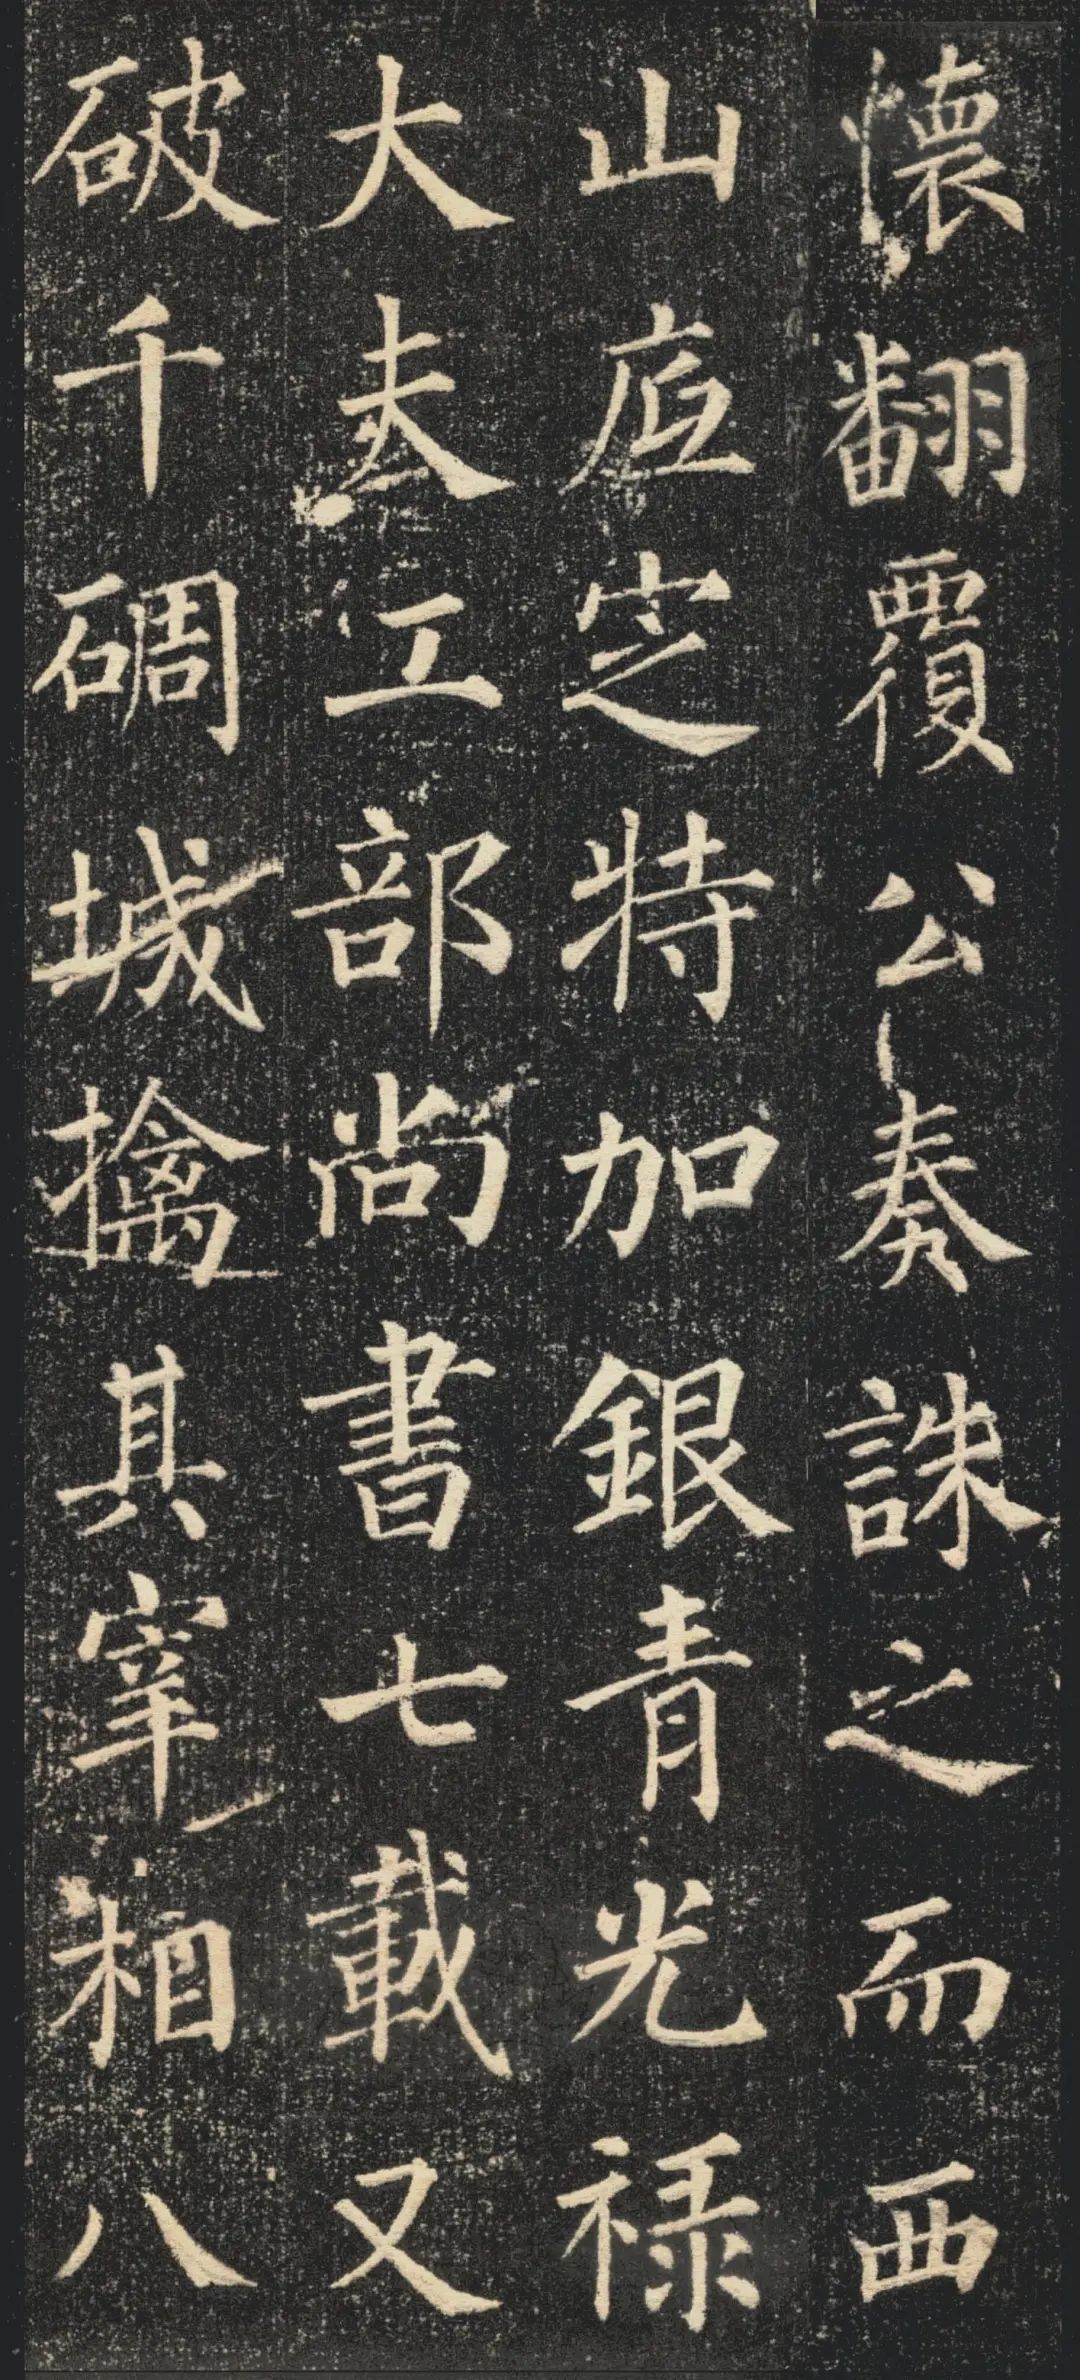 懷翻覆公奏誅之而西
山底定特加銀青光祿
大夫工部尚書七載又
破千碉城擒其宰相八